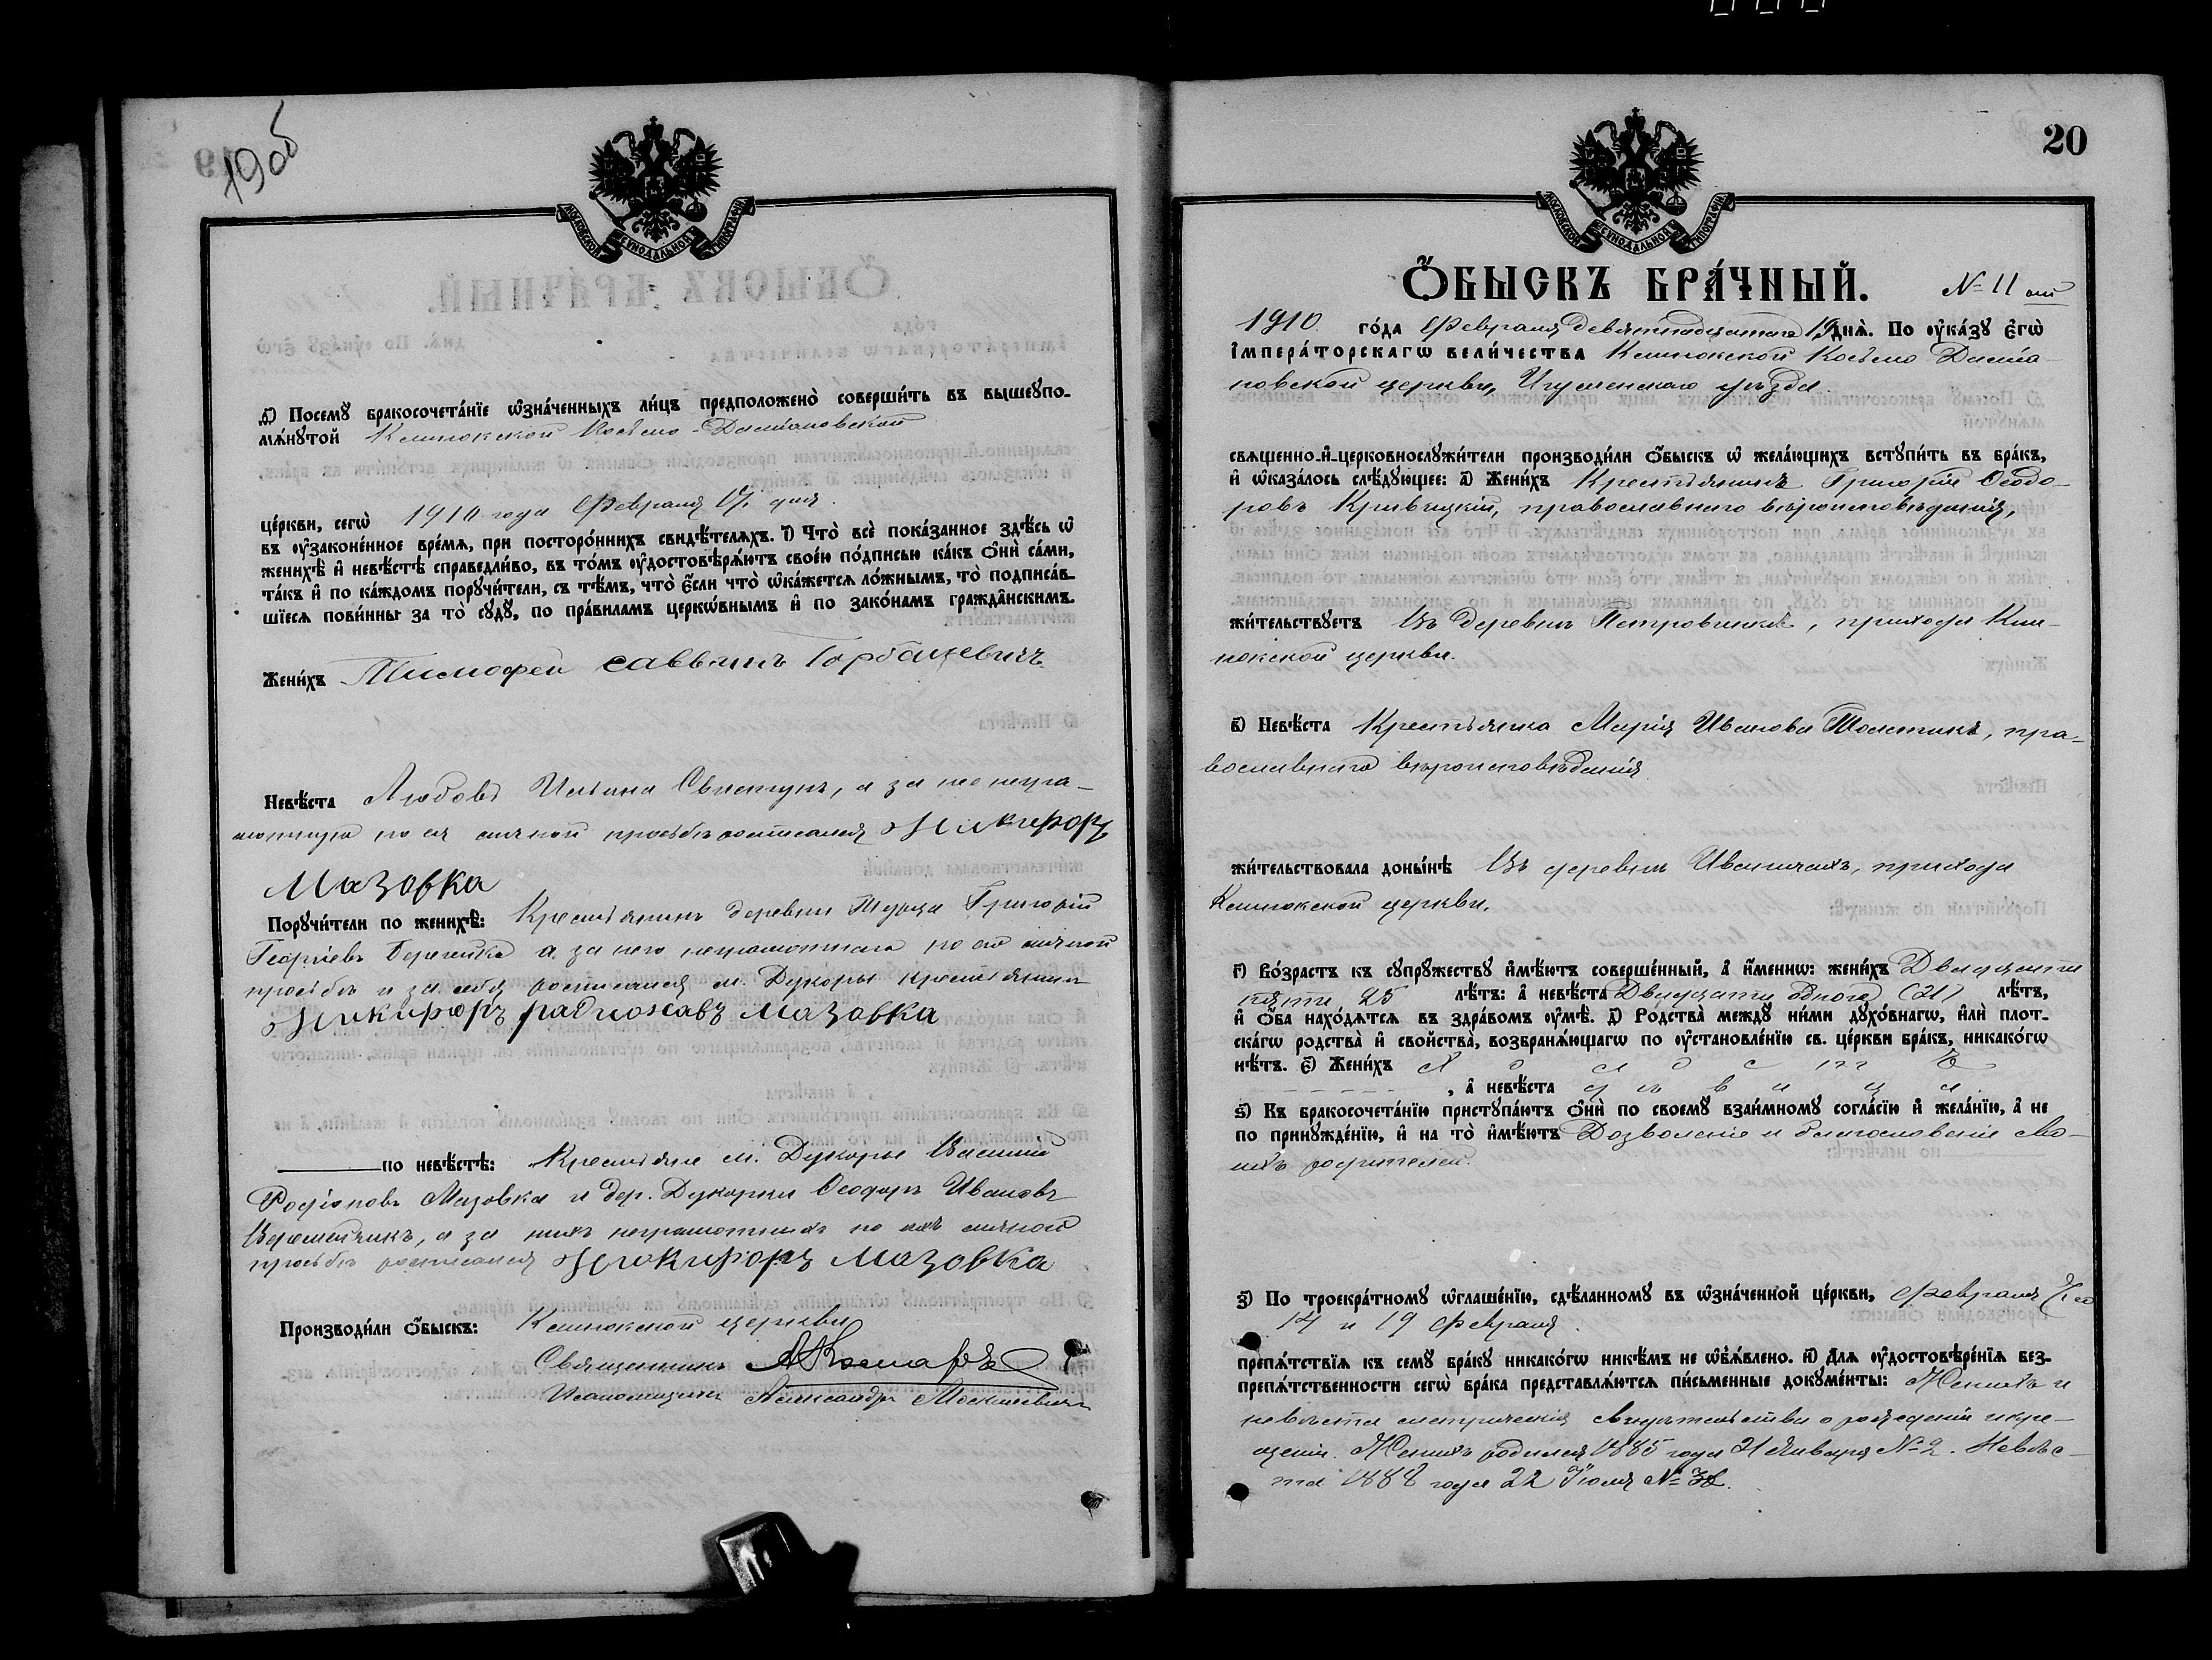 19об
МОСКОВСКОЙ СѴНОДАЛЬНОЙ ТИПОГРАФІИ
д҃) Посемꙋ̀ бракосочета́нїе ѡ҆зна́ченныхъ ли́цъ предположено̀ соверши́ть въ вышеꙋпо-
мѧ́нꙋтой Клинокской Косьмо-Даміановской
це́ркви, сегѡ̀ 1910 года Февраля 19 дня.
въ ᲂу҆законе́нное вре́мѧ, при посторо́ннихъ свидѣ́телѧхъ. і҃) Что̀ всѐ пока́занное здѣ́сь ѡ҆
женихѣ̀ и҆ невѣ́стѣ справедли́во, въ то́мъ ᲂу҆достовѣрѧ́ютъ свое́ю по́дписью ка́къ ѻ҆нѝ са́ми,
та́къ и҆ по ка́ждомъ порꙋчи́тели, съ тѣ́мъ, что̀ є҆́сли что̀ ѡ҆ка́жетсѧ ло́жнымъ, то̀ подписа́в-
шїесѧ пови́нны за то̀ сꙋдꙋ̀, по пра́виламъ церкѡ́внымъ и҆ по зако́намъ гражда̂нскимъ.
Жени́хъ Тимофей саввинъ Горбацевичъ
Невѣ́ста Любовь Ильина Свистунъ, а за нее негра-
мотную по ея личной просьбѣ росписался Никифоръ
Мазовка
Порꙋчи́тели по женихѣ̀: Крестьянинъ деревни Турца Григорій
Георгіевъ а за него неграмотнаго по его личной
просьбѣ и за себя росписался м. Дукоры крестьянинъ
Никифоръ Мазовка
по невѣ́стѣ: Крестьяне м. Дукоры Василій
Родіоновъ Мазовка и дер. Дукорки Ѳеодоръ Ивановъ
а за нихъ неграмотныхъ по ихъ личной
просьбѣ росписался Никифоръ Мазовка
Производи́ли ѻ҆́быскъ: Клинокской церкви
Священникъ
Псаломщикъ Александръ
20
МОСКОВСКОЙ СѴНОДАЛЬНОЙ ТИПОГРАФІИ
Ѻ҆́БЫСКЪ БРА́ЧНЫЙ. № 11 ый
1910 го́да Февраля девятнадцатаго 19 днѧ̀. По ᲂу҆ка́зꙋ є҆гѡ̀
і҆мпера́торскагѡ вели́чества Клинокской Косьмо Даміа-
новской церкви, Игуменскаго уѣзда
свѧщенно-и҆-церковнослꙋжи́тели производи́ли ѻ҆́быскъ ѡ҆ жела́ющихъ встꙋпи́ть въ бра́къ,
и҆ ѡ҆каза́лось слѣ́дꙋющее: а҃) Жени́хъ Крестьянинъ Григорій Ѳеодо-
ровъ Кривицкій, православнаго вѣроисповѣданія,
жи́тельствꙋетъ Въ деревнѣ , прихода Кли-
нокской церкви.
в҃) Невѣ́ста Крестьянка Марія Иванова Толстикъ, пра-
вославнаго вѣроисповѣданія
жи́тельствовала доны́нѣ Въ деревнѣ Иваничахъ, прихода
Клинокской церкви.
г҃) Во́зрастъ къ сꙋпрꙋжествꙋ и҆мѣ́ютъ соверше́нный, а҆ и҆́меннѡ: жени́хъ Двадцати
пяти 25 лѣ́тъ: а҆ невѣ́ста Двадцати одного (21) лѣ́тъ,
и҆ ѻ҆́ба нахо́дѧтсѧ въ здра́вомъ ᲂу҆мѣ̀. д҃) Родства̀ междꙋ̀ ни́ми дꙋхо́внагѡ, и҆лѝ плот-
ска́гѡ родства̀ и҆ сво́йства̀, возбранѧ́ющагѡ по ᲂу҆становле́нїю св. це́ркви бра́къ, никако́гѡ
нѣ́тъ. є҃) Жени́хъ Холостъ
, а҆ невѣ́ста дѣвица
ѕ҃) Къ бракосочета́нїю пристꙋпа́ютъ ѻ҆нѝ по своемꙋ̀ взаи́мномꙋ согла́сїю и҆ жела́нїю, а҆ не
по принꙋжде́нїю, и҆ на то̀ и҆мѣ́ютъ Дозволеніе и благословеніе сво-
ихъ родителей.
з҃) По троекра́тномꙋ ѡ҆глаше́нїю, сдѣ́ланномꙋ въ ѡ҆зна́ченной це́ркви, Февраля
14 и 19 Февраля.
препѧ́тствїѧ къ семꙋ̀ бра́кꙋ никако́гѡ никѣ́мъ не ѡ҆б̾ѧ́влено. и҃) Для ᲂу҆достовѣре́нїѧ без-
препѧ́тственности сегѡ̀ бра́ка представлѧ́ютсѧ пи́сьменные докꙋме́нты: Жениха и
невѣсты метрическія свидѣтельства о рожденіи и кре-
щеніи. Женихъ родился 1885 года 21 Января № 2. Невѣс-
та 1888 года 22 Іюля №